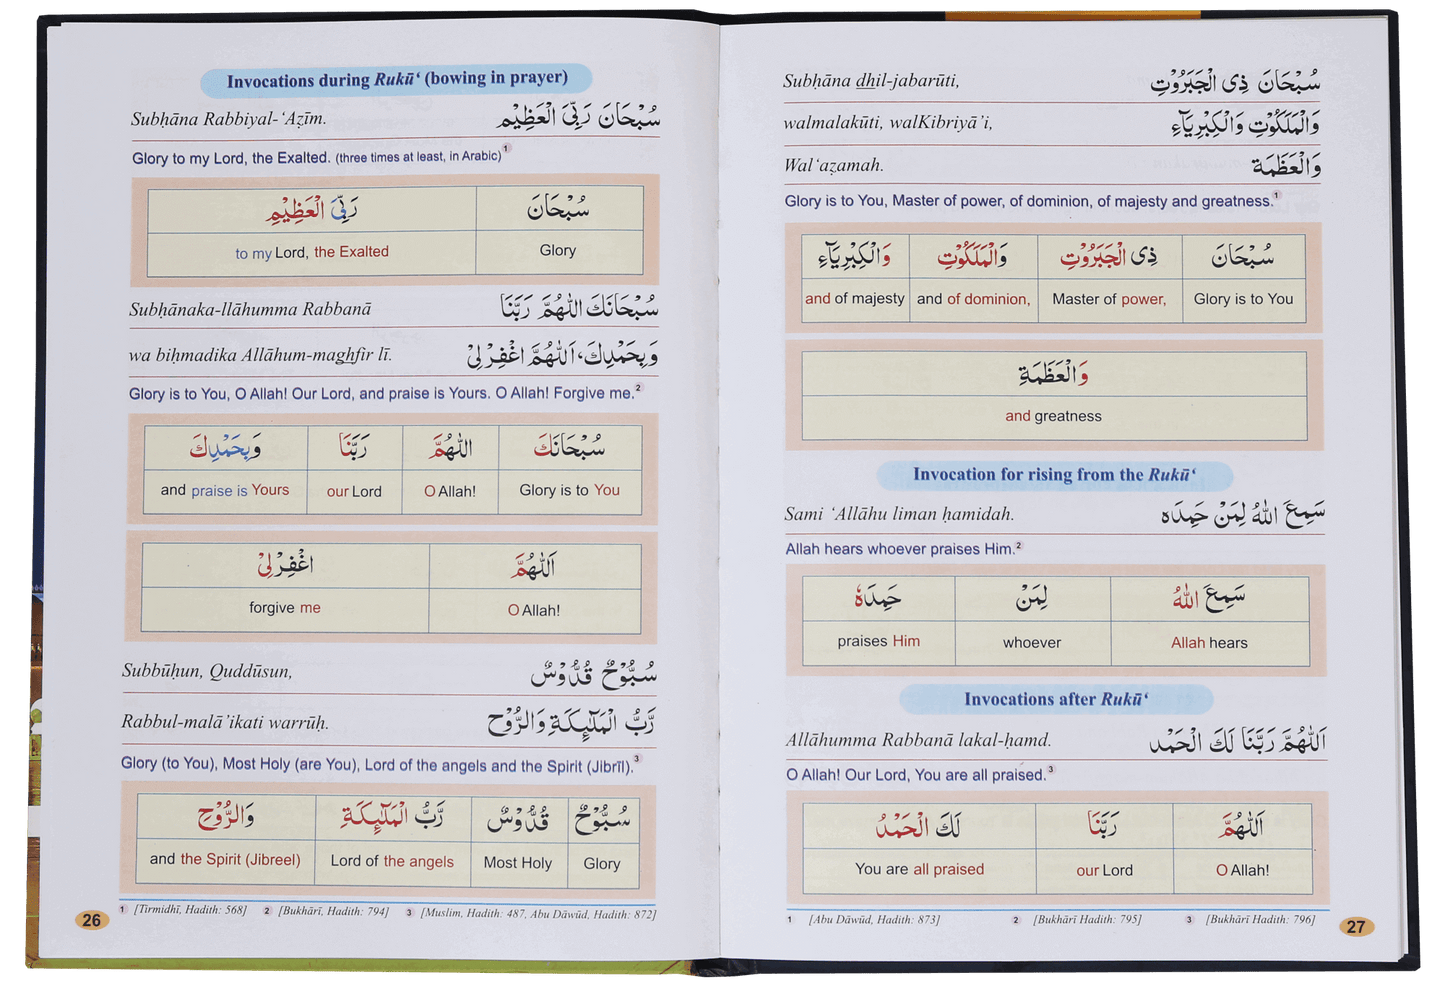 Invocations during Rukū‘ (bowing in prayer)
Subḥāna Rabbiyal-‘Aẓīm. سُبْحَانَ رَبِّيَ الْعَظِيْمِ
Glory to my Lord, the Exalted. (three times at least, in Arabic) 1
رَبِّيَ الْعَظِيْمِ سُبْحَانَ
to my Lord, the Exalted Glory
Subḥānaka-llāhumma Rabbanā سُبْحَانَكَ اللّٰهُمَّ رَبَّنَا
wa biḥmadika Allāhum-maghfir lī. وَبِحَمْدِكَ، اَللّٰهُمَّ اغْفِرْ لِيْ
Glory is to You, O Allah! Our Lord, and praise is Yours. O Allah! Forgive me. 2
وَبِحَمْدِكَ رَبَّنَا اللّٰهُمَّ سُبْحَانَكَ
and praise is Yours our Lord O Allah! Glory is to You
اغْفِرْ لِيْ اَللّٰهُمَّ
forgive me O Allah!
Subbūḥun, Quddūsun, سُبُّوْحٌ قُدُّوْسٌ
Rabbul-malā’ikati warrūḥ. رَّبُّ الْمَلَآئِكَةِ وَالرُّوْحِ
Glory (to You), Most Holy (are You), Lord of the angels and the Spirit (Jibrīl). 3
وَالرُّوْحِ رَّبُّ الْمَلَآئِكَةِ قُدُّوْسٌ سُبُّوْحٌ
and the Spirit (Jibreel) Lord of the angels Most Holy Glory
1 [Tirmidhī, Hadith: 568] 2 [Bukhārī, Hadith: 794] 3 [Muslim, Hadith: 487, Abu Dāwūd, Hadith: 872]
26
Subḥāna dhil-jabarūti, سُبْحَانَ ذِى الْجَبَرُوْتِ
walmalakūti, walKibriyā’i, وَالْمَلَكُوْتِ وَالْكِبْرِيَآءِ
Wal‘aẓamah. وَالْعَظَمَةِ
Glory is to You, Master of power, of dominion, of majesty and greatness. 1
وَالْكِبْرِيَآءِ وَالْمَلَكُوْتِ ذِى الْجَبَرُوْتِ سُبْحَانَ
and of majesty and of dominion, Master of power, Glory is to You
وَالْعَظَمَةِ
and greatness
Invocation for rising from the Rukū‘
Sami ‘Allāhu liman ḥamidah. سَمِعَ اللّٰهُ لِمَنْ حَمِدَه
Allah hears whoever praises Him. 2
حَمِدَهٗ لِمَنْ سَمِعَ اللّٰهُ
praises Him whoever Allah hears
Invocations after Rukū‘
Allāhumma Rabbanā lakal-ḥamd. اَللّٰهُمَّ رَبَّنَا لَكَ الْحَمْد
O Allah! Our Lord, You are all praised. 3
لَكَ الْحَمْدُ رَبَّنَا اَللّٰهُمَّ
You are all praised our Lord O Allah!
1 [Abu Dāwūd, Hadith: 873] 2 [Bukhārī Hadith: 795] 3 [Bukhārī Hadith: 796]
27